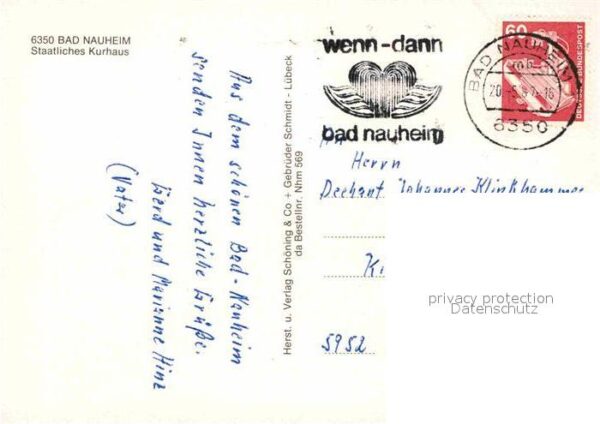 6350 BAD NAUHEIM
Staatliches Kurhaus
Aus dem schönen Bad-Nauheim
senden Ihnen herzliche Grüße.
Gerd und Marianne Hinz
(Vater)
Herst. u. Verlag Schöning & Co + Gebrüder Schmidt - Lübeck
da Bestellnr. Nhm 569
wenn-dann
bad nauheim
BAD NAUHEIM
6350
60
DEUTSCHE BUNDESPOST
Herrn
Dechant Johannes Klinkhammer
K
5952
privacy protection
Datenschutz